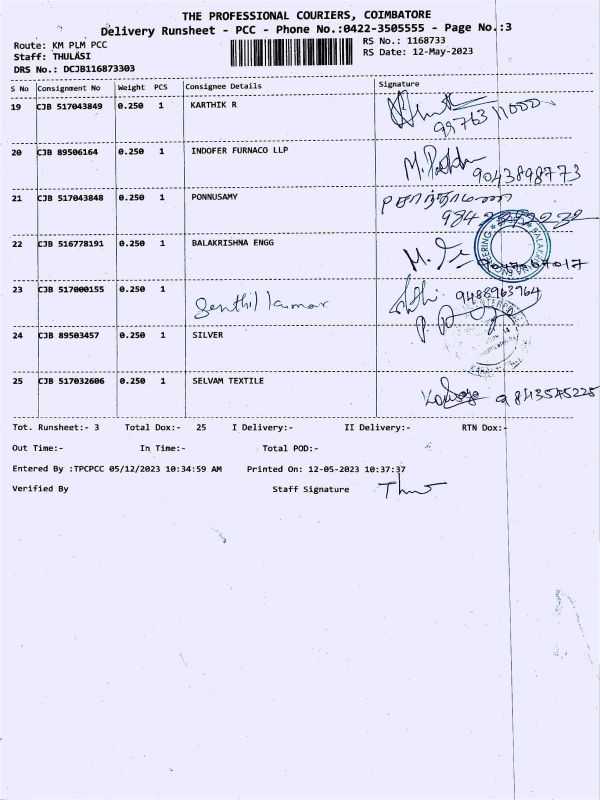 THE PROFESSIONAL COURIERS, COIMBATORE
Delivery Runsheet - PCC - Phone No.:0422-3505555 - Page No.:3
Route: KM PLM PCC
RS No.: 1168733
Staff: THULASI
RS Date: 12-May-2023
DRS No.: DCJB116873303
S No Consignment No Weight PCS Consignee Details Signature
19 CJB 517043849 0.250 1 KARTHIK R
20 CJB 89506164 0.250 1 INDOFER FURNACO LLP
9043898773
21 CJB 517043848 0.250 1 PONNUSAMY
22 CJB 516778191 0.250 1 BALAKRISHNA ENGG
23 CJB 517000155 0.250 1 Senthil kumar
9488963964
24 CJB 89503457 0.250 1 SILVER
25 CJB 517032606 0.250 1 SELVAM TEXTILE
9843545225
Tot. Runsheet:- 3 Total Dox:- 25 I Delivery:- II Delivery:- RTN Dox:-
Out Time:- In Time:- Total POD:-
Entered By :TPCPCC 05/12/2023 10:34:59 AM Printed On: 12-05-2023 10:37:37
Verified By Staff Signature